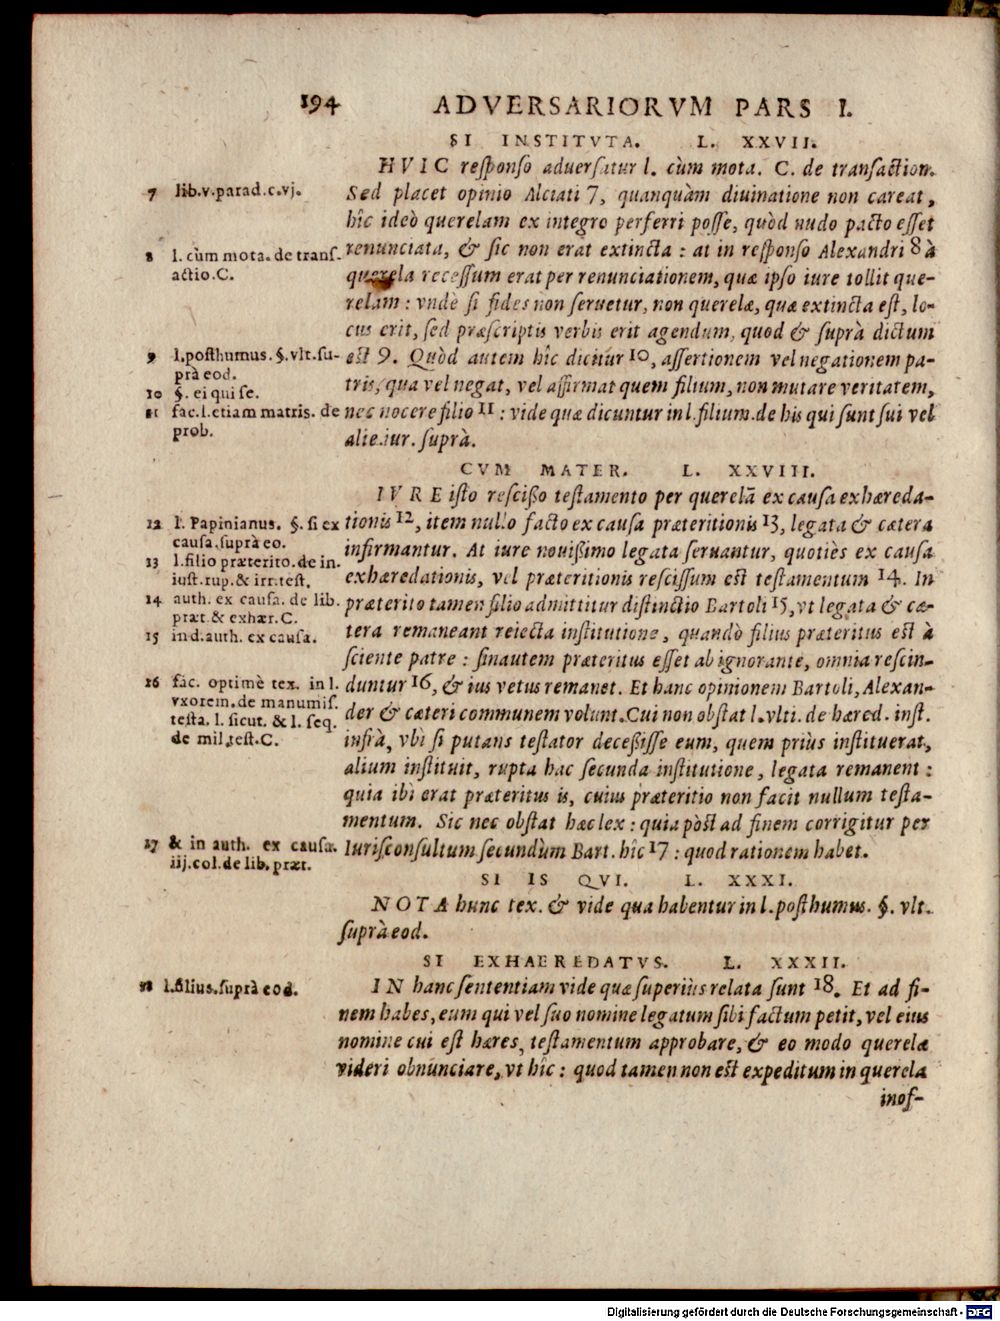 194 ADVERSARIORVM PARS I.
SI INSTITVTA. L. XXVII.
HVIC reſponſo aduerſatur l. cùm mota. C. de tranſaction.
Sed placet opinio Alciati 7, quanquàm diuinatione non careat,
hîc ideò querelam ex integro perferri poſſe, quòd nudo pacto eſſet
renunciata, & ſic non erat extincta : at in reſponſo Alexandri 8 à
querela receſſum erat per renunciationem, quæ ipſo iure tollit que-
relam : vndè ſi fides non ſeruetur, non querelæ, quæ extincta eſt, lo-
cus erit, ſed præſcriptis verbis erit agendum, quod & ſuprà dictum
eſt 9. Quòd autem hîc dicitur 10, aſſertionem vel negationem pa-
tris, qua vel negat, vel affirmat quem filium, non mutare veritatem,
nec nocere filio 11 : vide quæ dicuntur in l. filium. de his qui ſunt ſui vel
alie. iur. ſuprà.
7 lib. v. parad. c. vj.
8 l. cùm mota. de tranſ-
actio. C.
9 l. poſthumus. §. vlt. ſu-
prà eod.
10 §. ei qui ſe.
11 fac. l. etiam matris. de
prob.
CVM MATER. L. XXVIII.
IVRE iſto reſciſſo teſtamento per querelā ex cauſa exhæreda-
tionis 12, item nullo facto ex cauſa præteritionis 13, legata & cætera
infirmantur. At iure nouiſſimo legata ſeruantur, quotiès ex cauſa
exhæredationis, vel præteritionis reſciſſum eſt teſtamentum 14. In
præterito tamen filio admittitur diſtinctio Bartoli 15, vt legata & cæ-
tera remaneant reiecta inſtitutione, quandò filius præteritus eſt à
ſciente patre : ſinautem præteritus eſſet ab ignorante, omnia reſcin-
duntur 16, & ius vetus remanet. Et hanc opinionem Bartoli, Alexan-
der & cæteri communem volunt. Cui non obſtat l. vlti. de hæred. inſt.
infrà, vbi ſi putans teſtator deceſſiſſe eum, quem priùs inſtituerat,
alium inſtituit, rupta hac ſecunda inſtitutione, legata remanent :
quia ibi erat præteritus is, cuius præteritio non facit nullum teſta-
mentum. Sic nec obſtat hæc lex : quia pòſt ad finem corrigitur per
Iuriſconſultum ſecundùm Bart. hîc 17 : quod rationem habet.
12 l. Papinianus. §. ſi ex
cauſa. ſuprà eo.
13 l. filio præterito. de in-
iuſt. rup. & irr. teſt.
14 auth. ex cauſa. de lib.
præt. & exhær. C.
15 in d. auth. ex cauſa.
16 fac. optimè tex. in l.
vxorem. de manumiſ.
teſta. l. ſicut. & l. ſeq.
de mil. teſt. C.
17 & in auth. ex cauſa.
iij. col. de lib. præt.
SI IS QVI. L. XXXI.
NOTA hunc tex. & vide qua habentur in l. poſthumus. §. vlt.
ſuprà eod.
SI EXHAEREDATVS. L. XXXII.
IN hanc ſententiam vide quæ ſuperiùs relata ſunt 18. Et ad fi-
nem habes, eum qui vel ſuo nomine legatum ſibi factum petit, vel eius
nomine cui eſt hæres, teſtamentum approbare, & eo modo querelæ
videri obnunciare, vt hîc : quod tamen non eſt expeditum in querela
inof-
18 l. filius. ſuprà eod.
Digitalisierung gefördert durch die Deutsche Forschungsgemeinschaft - DFG